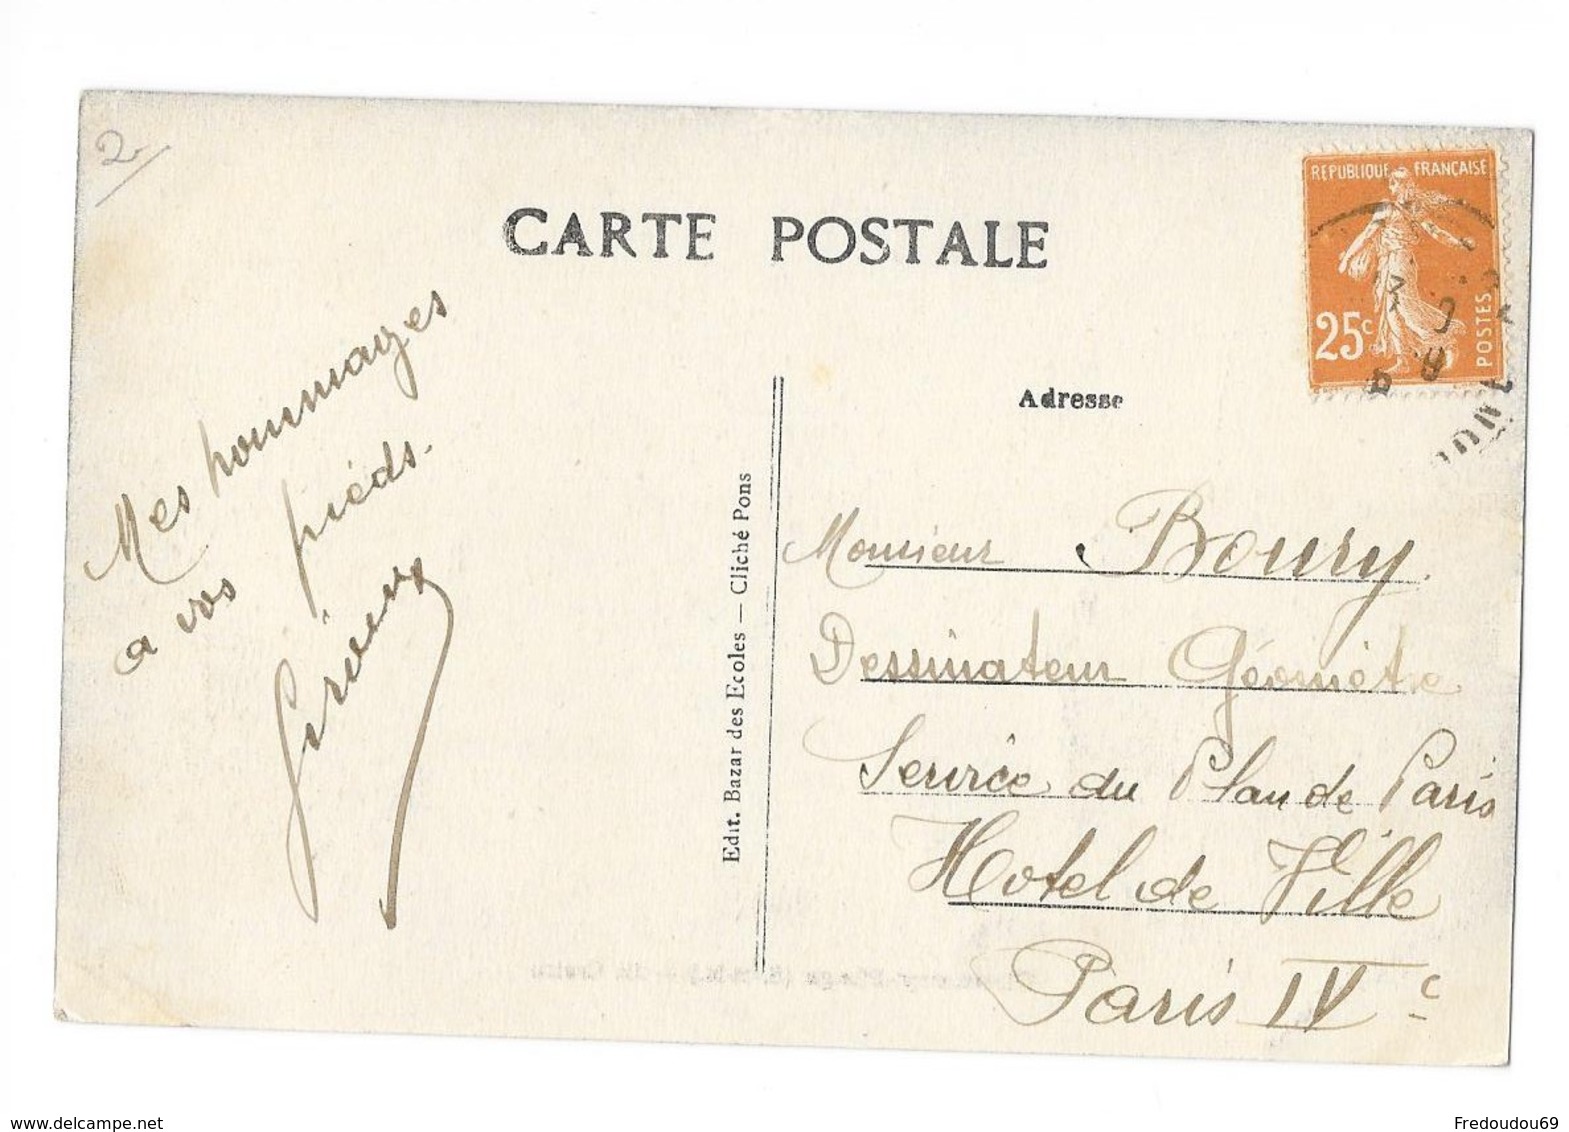 2
CARTE POSTALE
REPUBLIQUE FRANÇAISE
25c
POSTES
Adresse
Mes hommages
a vos pieds.
Edit. Bazar des Ecoles — Cliché Pons
Monsieur Boury.
Dessinateur Géomètre
Service du Plan de Paris
Hotel de Ville
Paris IVe
www.delcampe.net
Fredoudou69